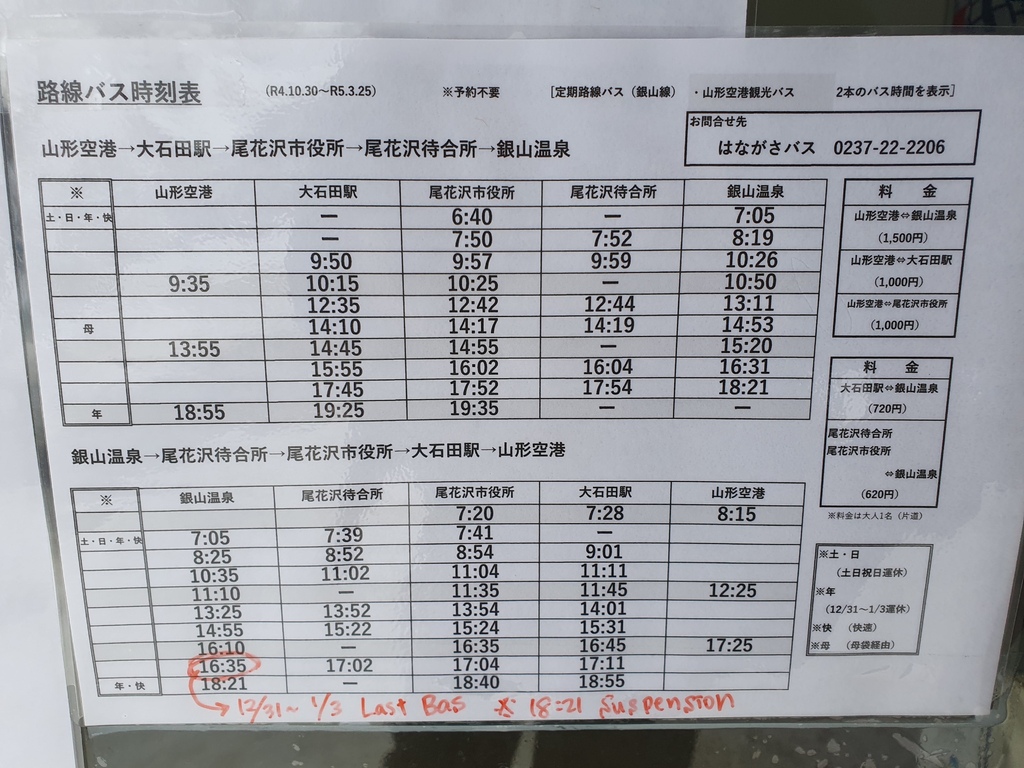 路線バス時刻表 (R4.10.30～R5.3.25) ※予約不要 [定期路線バス（銀山線） ・山形空港観光バス 2本のバス時間を表示]
お問合せ先
はながさバス 0237-22-2206
山形空港→大石田駅→尾花沢市役所→尾花沢待合所→銀山温泉
※ 山形空港 大石田駅 尾花沢市役所 尾花沢待合所 銀山温泉
土・日・年・快 ー 6:40 ー 7:05
ー 7:50 7:52 8:19
9:50 9:57 9:59 10:26
9:35 10:15 10:25 ー 10:50
12:35 12:42 12:44 13:11
母 14:10 14:17 14:19 14:53
13:55 14:45 14:55 ー 15:20
15:55 16:02 16:04 16:31
17:45 17:52 17:54 18:21
年 18:55 19:25 19:35 ー ー
料 金
山形空港⇔銀山温泉
（1,500円）
山形空港⇔大石田駅
（1,000円）
山形空港⇔尾花沢市役所
（1,000円）
料 金
大石田駅⇔銀山温泉
（720円）
尾花沢待合所
尾花沢市役所
⇔銀山温泉
（620円）
※料金は大人1名（片道）
銀山温泉→尾花沢待合所→尾花沢市役所→大石田駅→山形空港
※ 銀山温泉 尾花沢待合所 尾花沢市役所 大石田駅 山形空港
7:20 7:28 8:15
土・日・年・快 7:05 7:39 7:41 ー
8:25 8:52 8:54 9:01
10:35 11:02 11:04 11:11
11:10 ー 11:35 11:45 12:25
13:25 13:52 13:54 14:01
14:55 15:22 15:24 15:31
16:10 ー 16:35 16:45 17:25
16:35 17:02 17:04 17:11
年・快 18:21 ー 18:40 18:55
※土・日
（土日祝日運休）
※年
（12/31～1/3運休）
※快 （快速）
※母 （母袋経由）
12/31～1/3 Last Bas ※ 18=21 Suspension